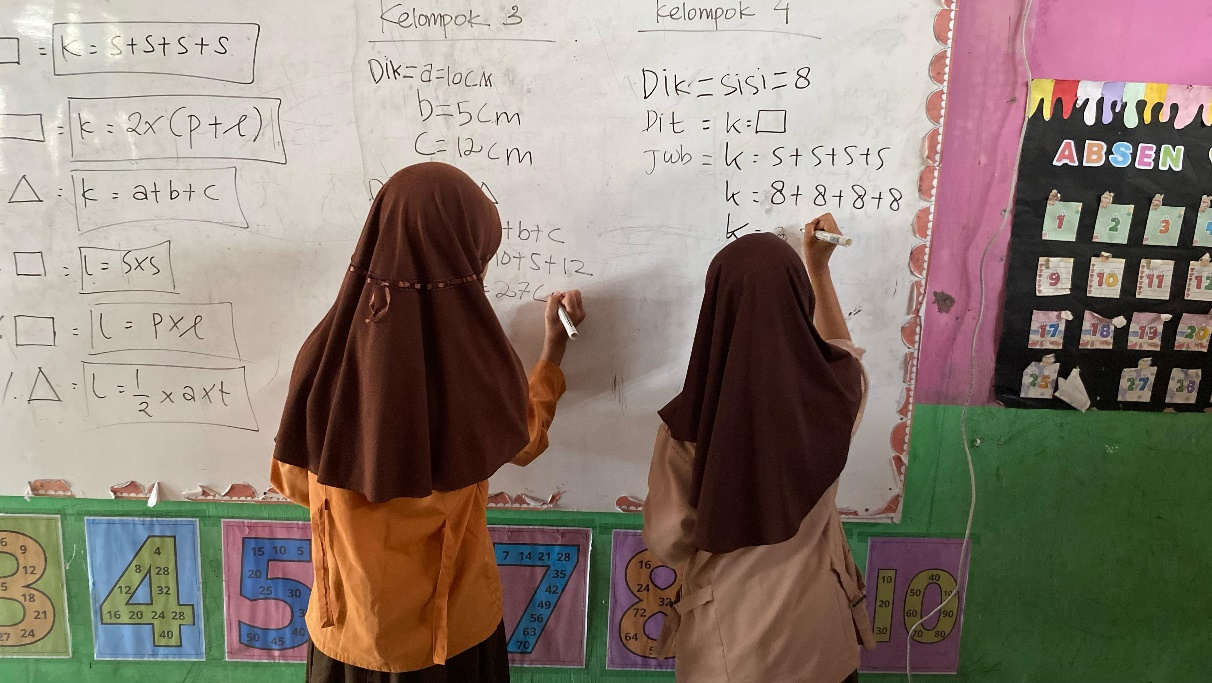 = K = S+S+S+S
= k = 2x(p+l)
: k = a+b+c
: L = SxS
= L = Pxl
= L = 1/2 x a x t
Kelompok 3
Dik = a = 10cm
b = 5cm
c = 12cm
+b+c
10+5+12
= 27c
Kelompok 4
Dik = sisi = 8
Dit = k = □
Jwb = k = S+S+S+S
k = 8+8+8+8
k =
ABSEN
1 2 3
9 10 11 12
17 18 19 20
25 27 28
6 9
12
18
21
27 24
4
8 28
12 32
16 20 24 28
40
15 10 5
20
25 30
50 45 40
7 14 21 28
35
42
49
56
63
70
16
24 32
72
64
10 40
50
20 60 90
30 70 80